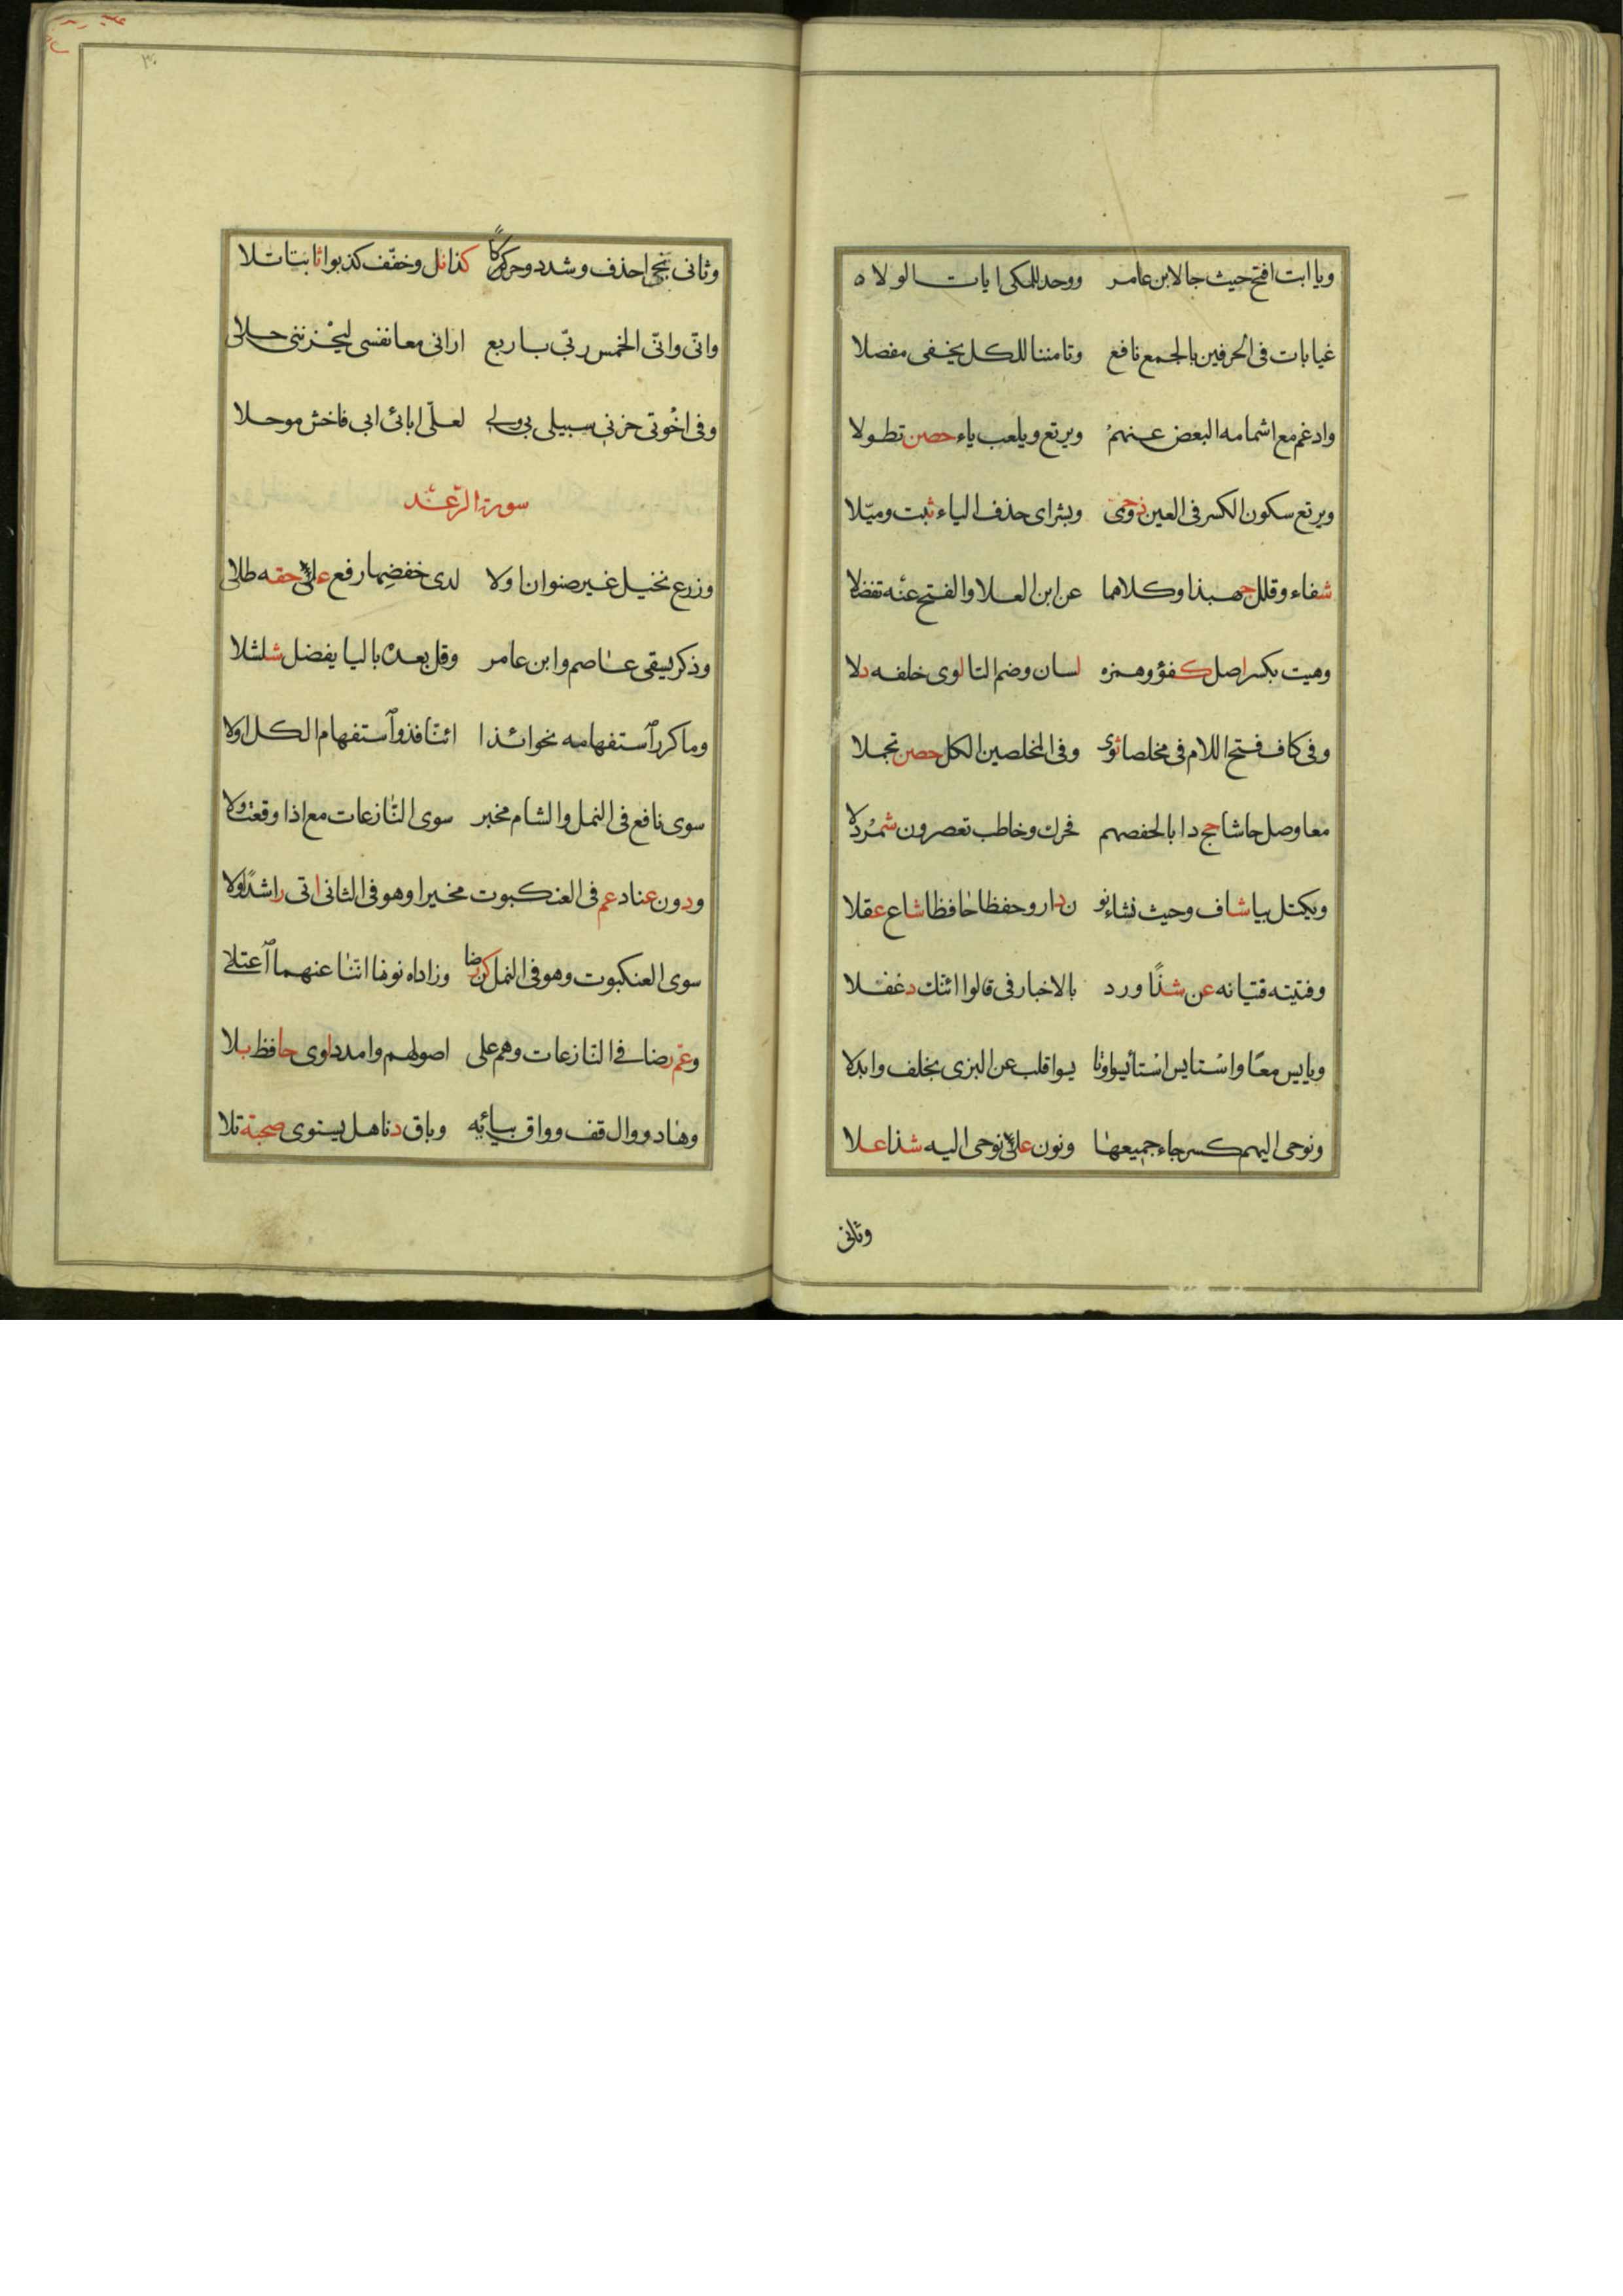 ويا ابت افتح حيث جا لابن عامر ووحد للمكى ايات الولا ه
غيابات فى الحرفين بالجمع نافع وتامننا للكل يخفى مفصلا
وادغم مع اشمامه البعض عنهم ويرتع ويلعب ياء حصن تطولا
ويرتع سكون الكسر فى العين ذو حمى وبشراى حذف الياء ثبت وميلا
شفاء وقلل جهبذا وكلاهما عن ابن العلا والفتح عنه تفضلا
وهيت بكسر اصل كفؤ وهمزه لسان وضم التا لوى خلفه دلا
وفى كاف فتح اللام فى مخلصا ثوى وفى المخلصين الكل حصن تجملا
معا وصل حاشا حج دابا لحفصهم فحرك وخاطب تعصرون شمردلا
ويكتل بيا شاف وحيث نشاء نو ن دار وحفظا حافظا شاع عقلا
وفتيته فتيانه عن شذا ورد بالاخبار فى قالوا ائنك دغفلا
ويايس معا واستايس استايسوا وتا يسوا اقلب عن البزى بخلف وابدلا
ونوحى اليهم كسر حاء جميعها ونون على نوحى اليه شذا علا
وثانى
وثانى ننجى احذف وشدد وحركا كذا نل وخفّف كذبوا ثابتا تلا
وانّى وانّى الخمس ربّى باربع ارانى معا نفسى ليحزننى حلا
وفى اخوتى حزنى سبيلى بى ولى لعلّى ابائى ابى فاخش موحلا
سورة الرّعد
وزرع نخيل غير صنوان اولا لدى خفضها رفع على حقه طلا
وذكر يسقى عاصم وابن عامر وقل بعده باليا يفضل شلشلا
وما كرر استفهامه نحو ائذا ائنا فذو استفهام الكل اولا
سوى نافع فى النمل والشام مخبر سوى النازعات مع اذا وقعت ولا
ودون عناد عم فى العنكبوت مخبرا وهو فى الثانى اتى راشدا ولا
سوى العنكبوت وهو فى النمل كن رضا وزاداه نونا اننا عنهما اعتلى
وعم رضا فى النازعات وهم على اصولهم وامدد لوى حافظ بلا
وهاد ووال قف وواق بيائه وباق دنا هل يستوى صحبة تلا